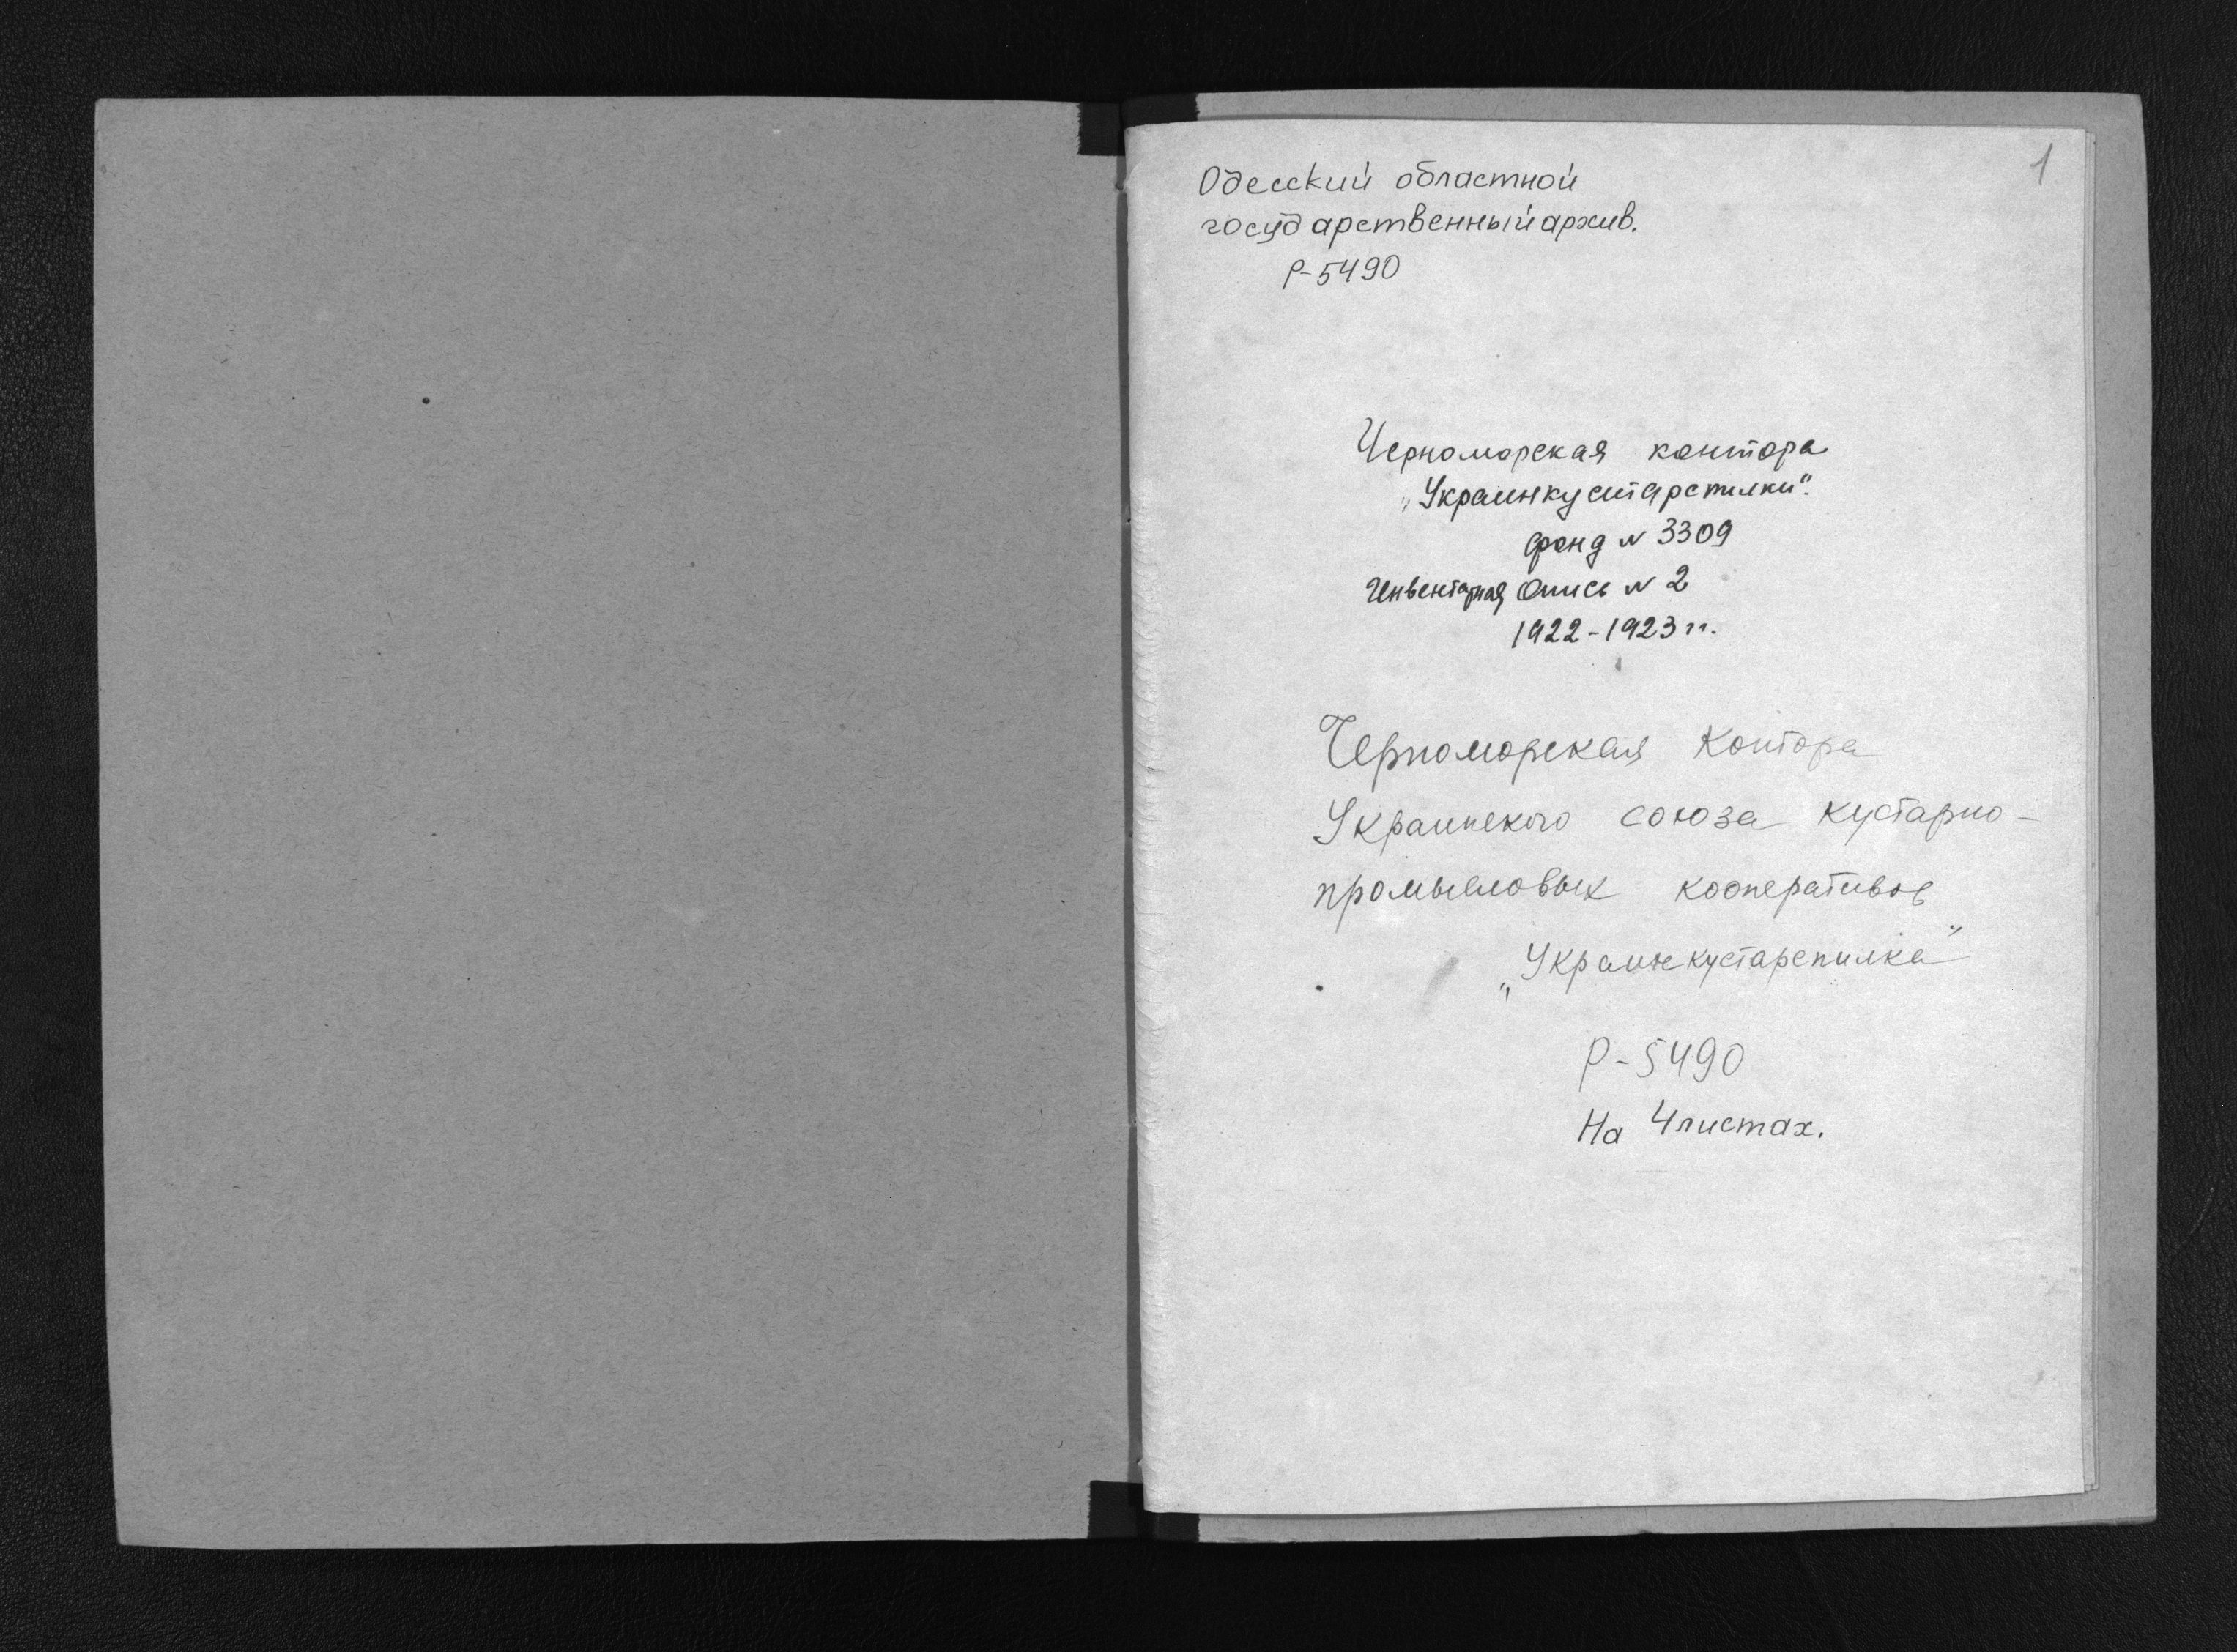 1
Одесский областной
государственный архив.
Р-5490
Черноморская контора
„Украинкустарспилки".
фонд № 3309
Инвентарная Опись № 2
1922-1923 гг.
Черноморская Контора
Украинского союза кустарно-
промысловых кооперативов
„Украинкустарспилка"
Р-5490
На 4 листах.